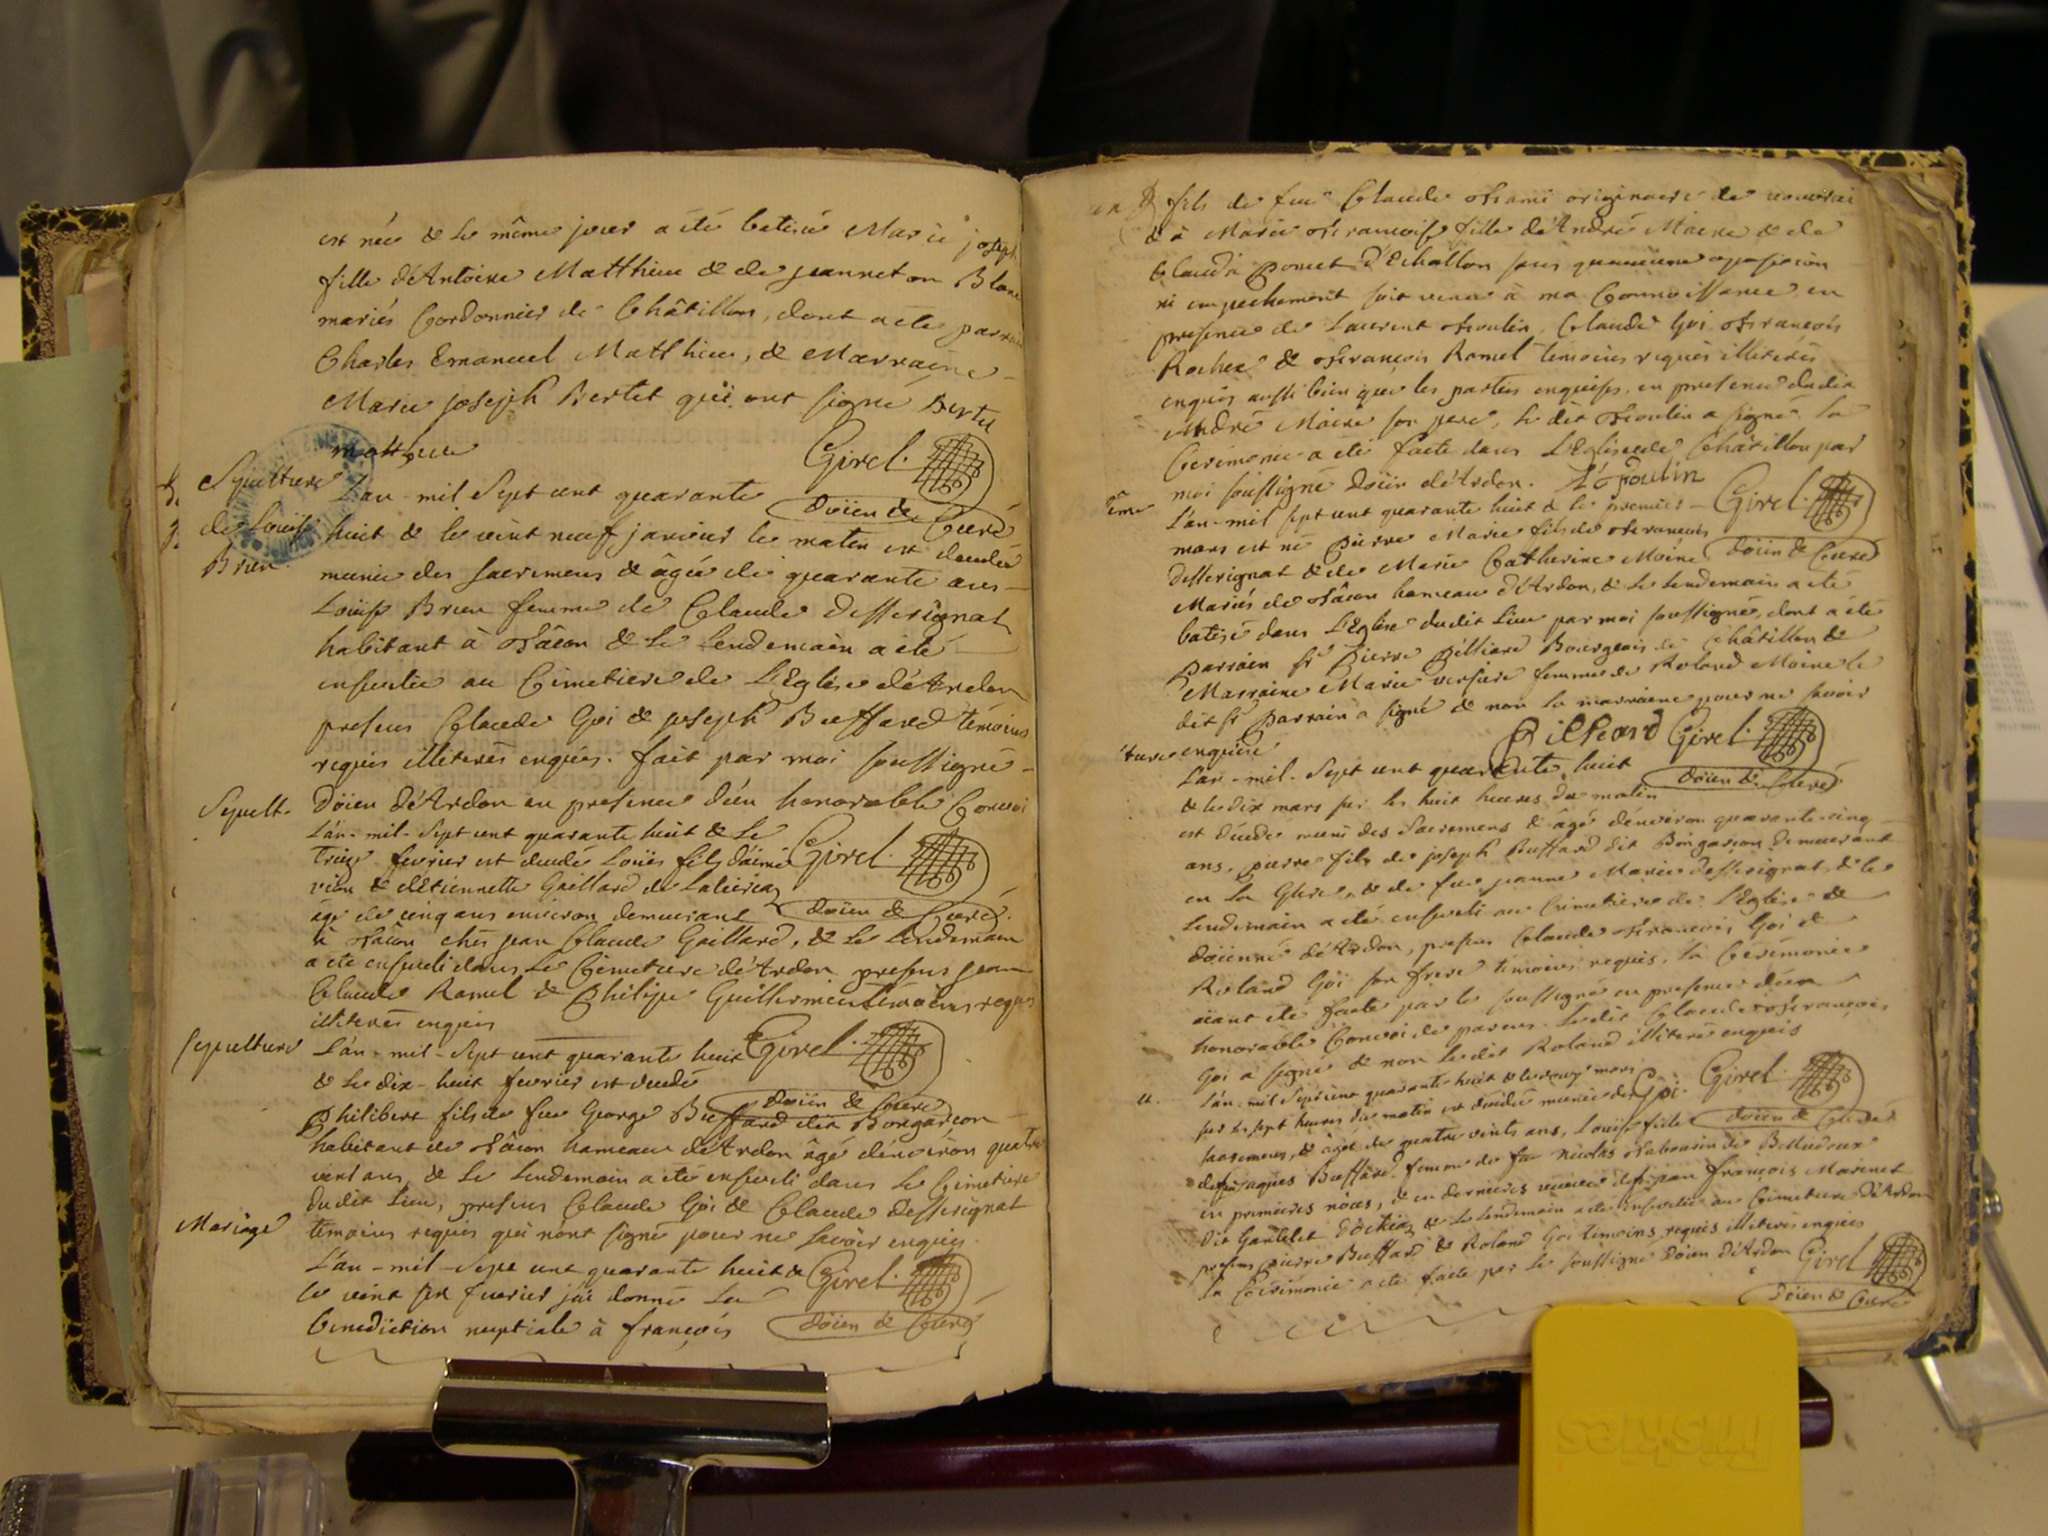 est née & le même jour a été batisée Marie joseph
fille d'Antoine Matthieu & de jeanneton Blanc
mariés Cordonnier de Châtillon, dont a été parrain
Charles Emanuel Matthieu, & Marraine
Marie joseph Bertet qui ont signé Bertet
matthieu Girel.
doïen & Curé
Sepulture
de Louïse
Brun.
L'an mil sept cent quarante
huit & le vint neuf janvier le matin est decedée
munie des sacremens & âgée de quarante ans
Louïse Brun femme de Claude Desserignat
habitant à Tâcon & le lendemain a été
ensevelie au Cimetiere de L'Eglise d'Ardon
presens Claude Goi & joseph Buffard témoins
requis illiterés enquis. fait par moi soussigné
Doïen d'Ardon en presence d'un honorable Convoi
Girel.
doïen & Curé
Sepult.
L'an-mil-sept cent quarante huit & le
treize fevrier est decedé Louïs fils d'aimé
& d'étiennette Gaillard de
âgé de cinq ans environ demeurant
à Tâcon chés jean Claude Gaillard, & le lendemain
a été enseveli dans le Cimetiere d'Ardon presens jean
Claude Ramel & Philipe Guillermin témoins requis
illiterés enquis
Girel.
doïen & Curé
sepulture
L'an-mil-sept cent quarante huit
& le dix-huit fevrier est decedé
Philibert fils de feu George Buffard dit Bongarcon
habitant de Tâcon hameau d'Ardon âgé d'environ quatre
vint ans, & le lendemain a été enseveli dans le Cimetiere
dudit Lieu, presens Claude Goi & Claude Desserignat
témoins requis qui n'ont signé pour ne savoir enquis.
Girel.
doïen & Curé
Mariage
L'an-mil-sept cent quarante huit &
le vint six fevrier j'ai donné la
benediction nuptiale à françois
fils de feu Claude originaire de
& à Marie Francoise fille d'André Moine & de
Clauda Poncet d'Echallon sans qu'aucune oposition
ni empechement soit venu à ma Connoissance en
presence de Laurent Poulin, Claude Goi François
Rochex & François Ramel témoins requis illiterés
enquis aussi bien que les parties enquises, en presence dudit
André Moine son pere, le dit Poulin a signé, la
Ceremonie a été faite dans L'Eglise de Châtillon par
moi soussigné Doïen d'Ardon. Poulin
Girel.
doïen & Curé
L'an-mil sept cent quarante huit & le premier
mars est né Pierre Marie fils de François
Desserignat & de Marie Catherine Moine
Mariés de Tâcon hameau d'Ardon, & le lendemain a été
batisé dans L'Eglise dudit Lieu par moi soussigné, dont a été
Parrain Sr Pierre Pilliard Bourgeois de Châtillon &
Marraine Marie femme de Roland Moine le
dit Sr Parrain a signé & non la marraine pour ne savoir
enquise
Pilliard Girel.
doïen & Curé
L'an-mil-sept cent quarante huit
& le dix mars sur les huit heures du matin
est decedé muni des Sacremens & agé d'environ quarante cinq
ans, pierre fils de joseph Buffard dit Bongarcon demeurant
en la & de feue jeanne Marie Desserignat, & le
lendemain a été enseveli au Cimetiere de L'Eglise &
doïenné d'Ardon, presens Claude François Goi &
Roland Goi son frere témoins requis, la Cérémonie
aiant été faite par le soussigné en presence d'un
honorable Convoi de parens. le dit Claude François
Goi a signé & non le dit Roland illiteré enquis
Goi. Girel.
doïen & Curé
L'an-mil sept cent quarante huit & le mars
sur les sept heures du matin est decedée munie des
sacremens, & agée de quatre vints ans, Louïse fille
de jaques Buffard femme de feu Nicolas
en premieres nôces, & en dernieres veuve de jean françois
dit & le lendemain a été ensevelie au Cimetiere d'Ardon
presens pierre Buffard & Roland Goi témoins requis illiterés enquis
la Cérémonie a été faite par le soussigné Doïen d'Ardon Girel
Doïen & Curé